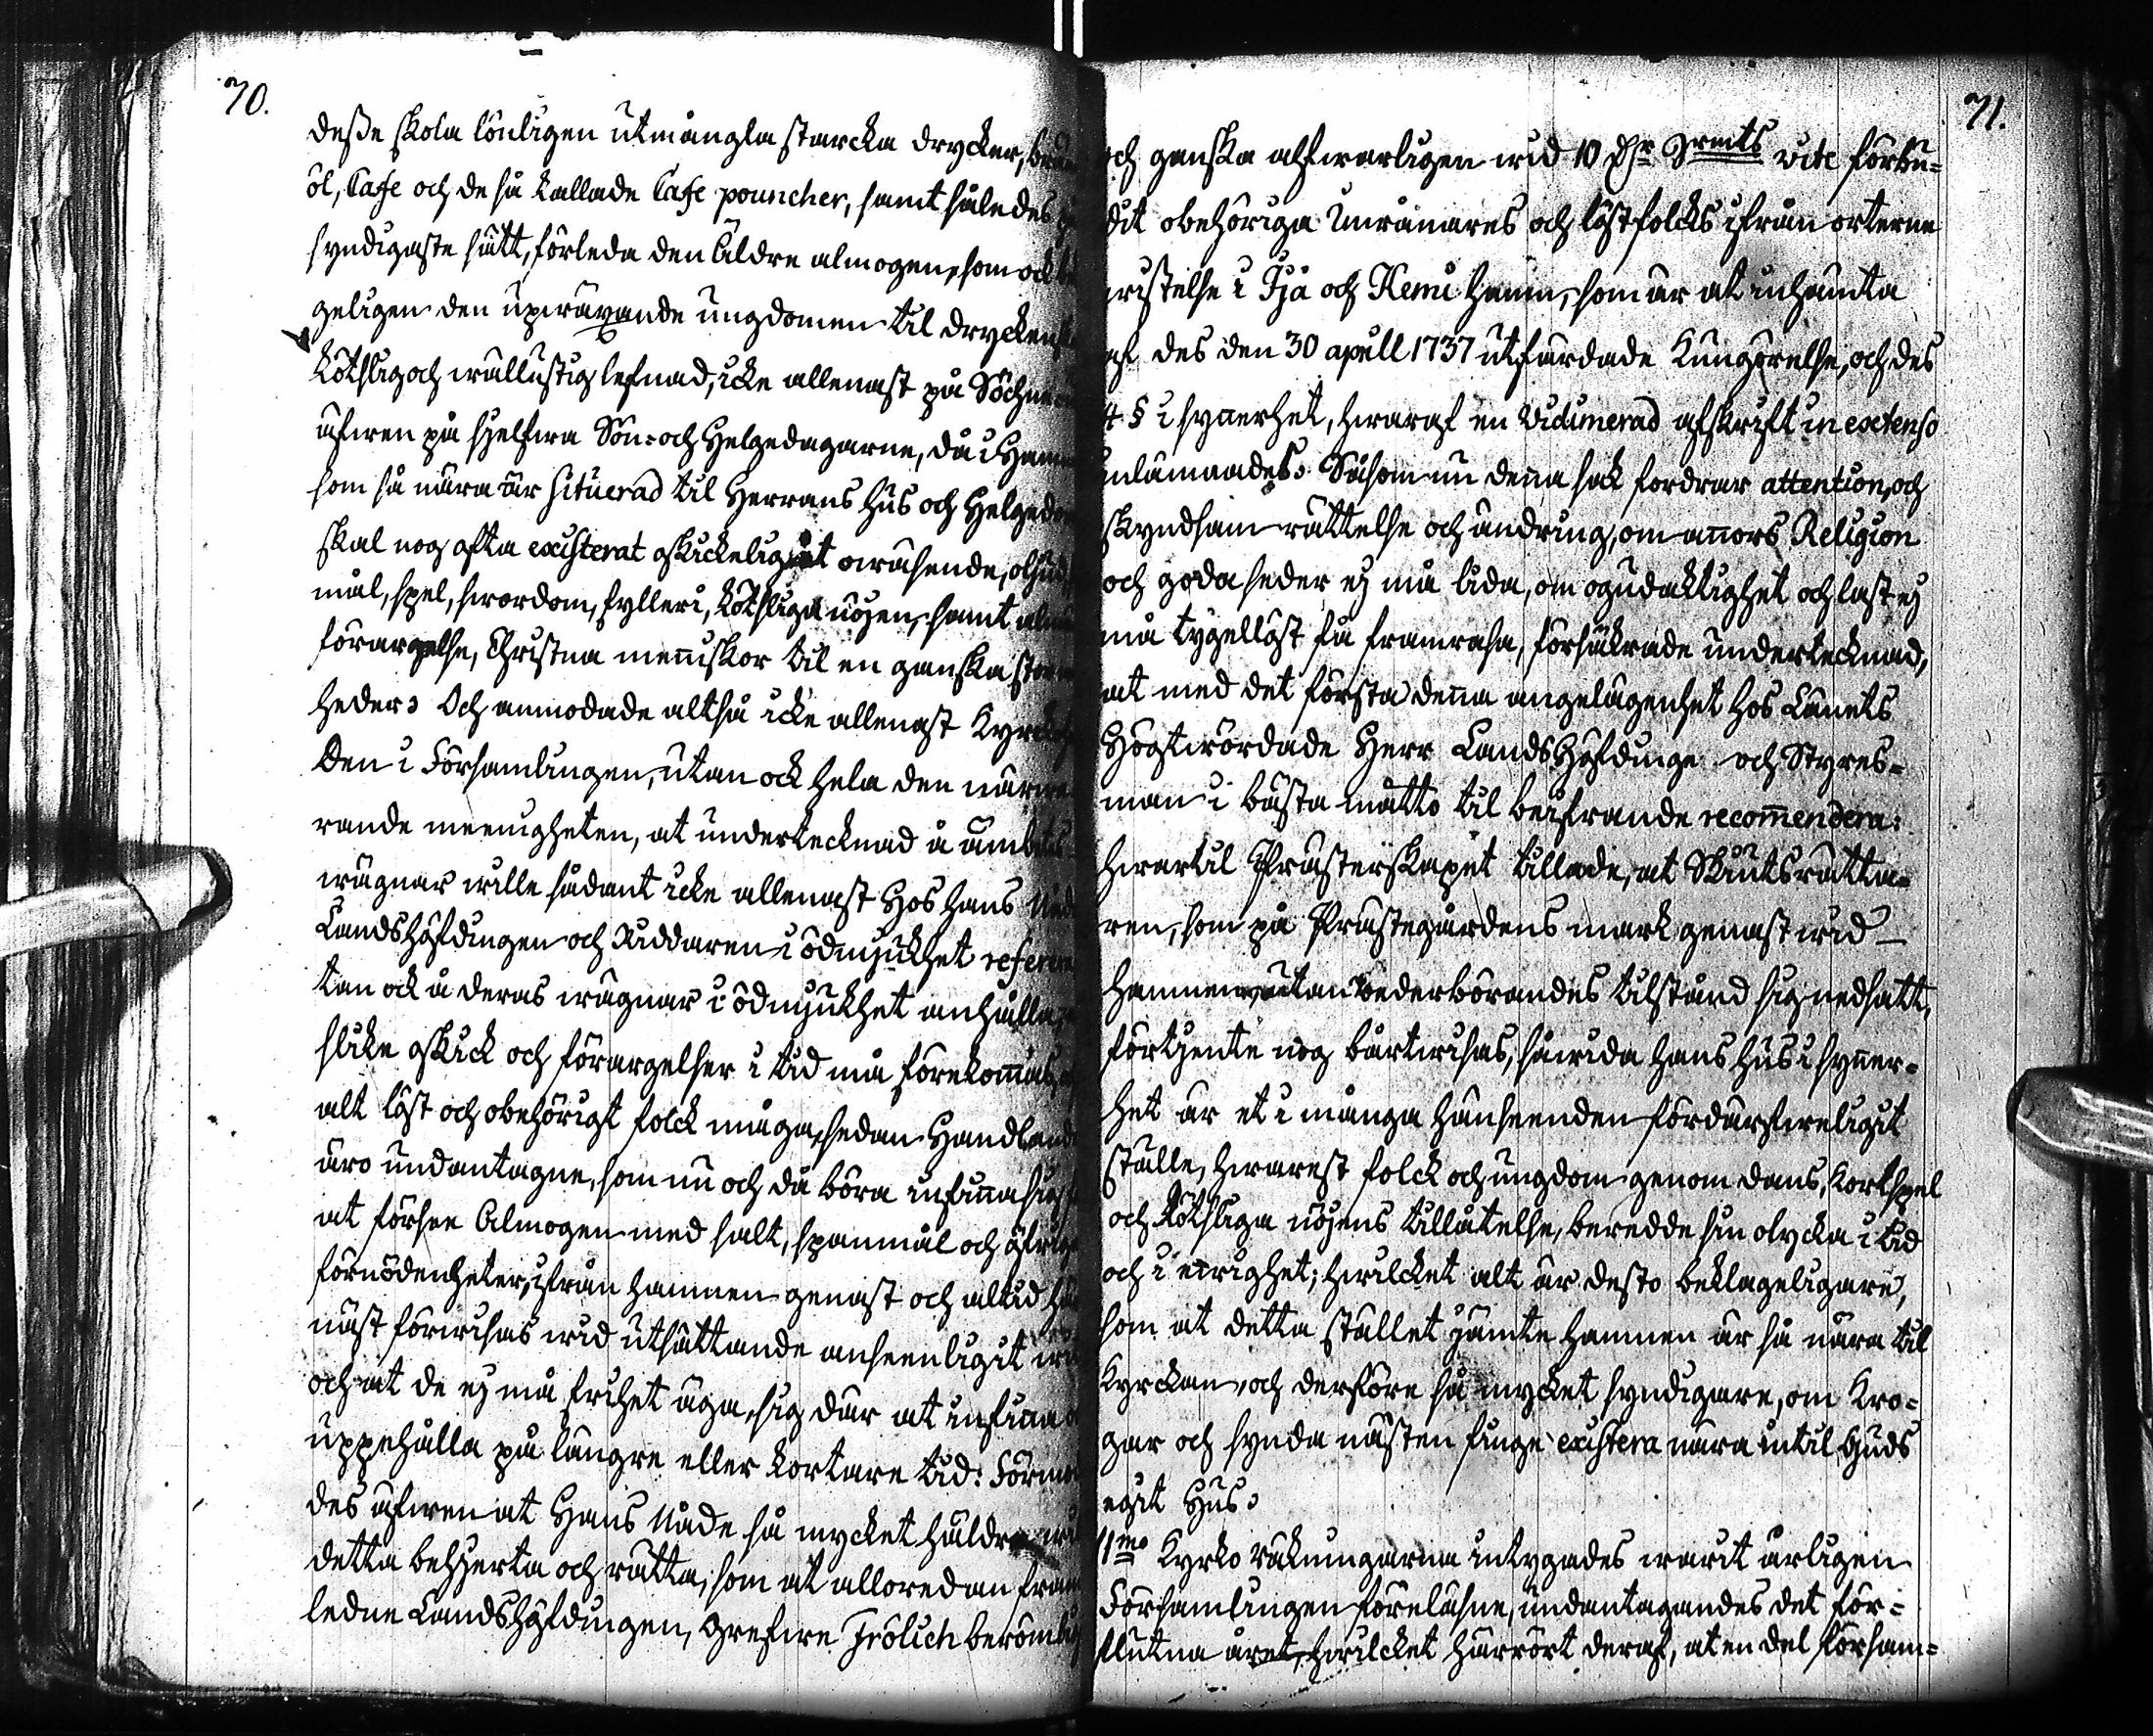 70.
deße skola lönligen utmångla starcka drycker,
öl, Cafe och de så kallade Cafe pouncher, samt således
syndigaste sätt, förleda den äldre almogen, som ock
geligen den upwäxande ungdomen til dryckens
köthslig och wällustig lefnad, icke allenast på Söchne
äfwen på sjelfwa Sön- och Helgedagarne, då i Ham
som så nära är situerad til Herrans Hus och Helgedom
skal nog ofta existerat oskickeligit owäsende,
mål, spel, swordom, fylleri, köthsliga nöjen, samt
förargelse, Christna menniskor til en ganska stor
heder: Och anmodade altså icke allenast Kyrcko
den i Församlingen, utan ock hela den närwa
rande menigheten, at undertecknad å ämbets
wägnar wille sådant icke allenast hos hans Nåd
Landshöfdingen och Riddaren i ödmjukhet refere
tan ock å deras wägnar i ödmjukhet anhålla,
slike oskick och förargelser i tid må förekommas,
alt löst och obehörigt folck måga, sedan Handlande
äro undantagne, som nu och då böra infinna sig
at förse Almogen med salt, spanmål och öfrige
förnödenheter, ifrån hamnen genast och altid
näst förwisas wid utsättande ansenligit wi
och at de ej må frihet äga, sig där at infinna
uppehålla på längre eller kortare tid: Förmo
des äfwen at Hans Nåde så mycket häldre
detta behjerta och rätta, som at alloredan fram
ledne Landshöfdingen, Grefwe Frölich berömlig
71.
och ganska alfwarligen wid 10 Dlr Srmts vite förbu-
dit obehöriga inwånares och löstfolcks ifrån orterne
wistelse i Ijå och Kemi hamn, som är at inhämta
af des den 30 apriil 1737 utfärdade Kungörelse, och des
4 § i synnerhet, hwaraf en vidimerad afskrift in extenso
inlämnades. Såsom nu denna sak fordrar attention, och
skyndsam rättelse och ändring, om annors Religion
och goda seder ej må lida, om ogudaktighet och last ej
må tygellöst få framrasa, försäkrade undertecknad,
at med det första denna angelägenhet hos Länets
Högtwördade Herr Landshöfdinge och Styres-
man i bästa måtto til beifrande recommendera:
hwartil Prästerskapet tillade, at Skiutsrätta-
ren, som på Prästegårdens mark genast wid
hamnen, utan wederbörandes tilstånd sig nedsatt,
förtjente nog bårtwisas, såwida hans hus i synner-
het är et i många hänseenden fördärfweligit
ställe, hwarest folck och ungdom genom dans, Kortspel
och köthsliga nöjens tillåtelse, beredde sin olycka i tid
och i ewighet; hwilcket alt är desto beklageligare,
som at detta stället jämte hamnen är så nära til
Kyrckan, och derföre så mycket syndigare, om Kro-
gar och synda nästen finge existera nära intil Guds
egit Hus.
11mo Kyrko räkningarna intygades warit årligen
Församlingen föreläsne, undantagandes det för-
flutna året, hwilcket härrört deraf, at en del försam-